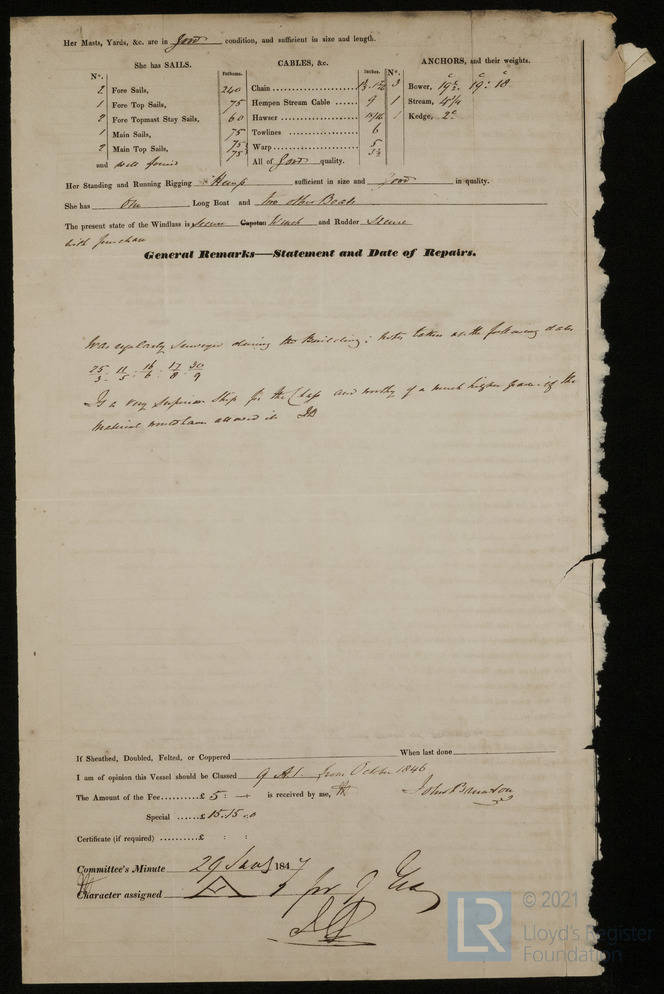 Her Masts, Yards, &c. are in Good condition, and sufficient in size and length.
She has SAILS.
CABLES, &c.
ANCHORS, and their weights.
Nº.
Fathoms.
Inches.
Nº.
2 Fore Sails,
1 Fore Top Sails,
2 Fore Topmast Stay Sails,
1 Main Sails,
2 Main Top Sails,
and well found
240 Chain
75 Hempen Stream Cable 9
60 Hawser
75 Towlines 6
75 Warp 5
75 3½
All of Good quality.
3 Bower, 19
1 Stream, 4
1 Kedge, 2
Her Standing and Running Rigging Hemp sufficient in size and Good in quality.
She has One Long Boat and two other Boats
The present state of the Windlass is Secure Capstan Winch and Rudder Secure
with purchase
General Remarks—Statement and Date of Repairs.
Was regularly surveyed during the Building; notes taken at the following dates
25/3 11/5 16/6 17/8 30/9
Is a very Superior Ship for the Class and worthy of a much higher grade if the
Material would have allowed it JB
If Sheathed, Doubled, Felted, or Coppered When last done
I am of opinion this Vessel should be Classed 9 A1. from October 1846
The Amount of the Fee..........£ 5 : — is received by me,
Special ......£ 15.15.0
Certificate (if required) .........£ : :
Committee's Minute 29 Jany 1847
Character assigned
© 2021
LR
Lloyd's Register
Foundation